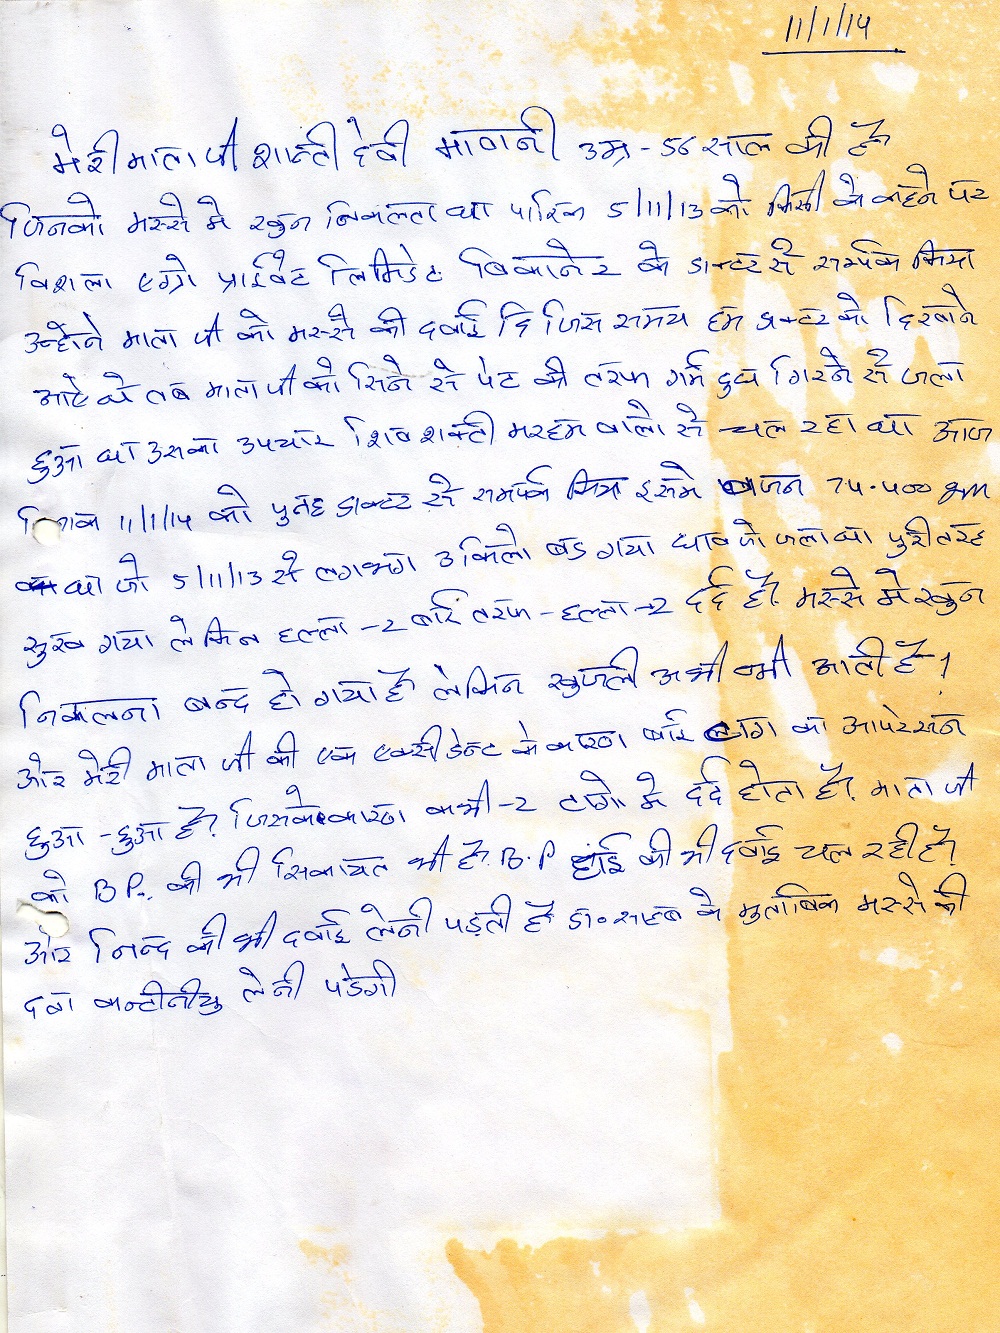 11/1/14
मेरी माता जी शान्ती देवी उम्र - 56 साल की है
जिनको मस्से मे खुन निकलता था 5/11/13 को किसी के कहने पर
विशला एग्रो प्राईवेट लिमिडेट बिकानेर के डाक्टर से सर्म्पक किया
उन्होने माता जी को मस्से की दवाई दि जिस समय हम डाक्टर को दिखाने
आऐ थे तब माता जी को सिने से पेट की तरफ गर्म दुध गिरने से जला
हुआ था उसका उपचार शिव शक्ती मरहम वालो से चल रहा था आज
11/1/14 को पुनह डाक्टर से सर्म्पक किया इसमे वजन 74.400 gm
था जो 5/11/13 से लगभग 3 किलो बड गया घाव जो जला था पुरी तरह
सुख गया लेकिन हल्ला -2 बाई तरफ - हल्ला -2 दर्द है. मस्से मे खुन
निकलना बन्द हो गया है लेकिन खुजली अभी भी आती है।
और मेरी माता जी की एक एक्सीडेन्ट के कारण बाई टाग का आपरेसन
हुआ - हुआ है. जिसके कारण कभी -2 टागो मे दर्द होता है. माता जी
को B P. की भी सिकायत भी है. B.P हाई की भी दवाई चल रही है.
और निन्द की भी दवाई लेनी पड़ती है डा० साहब के मुताबिक मस्से की
दवा कन्टीनीयु लेनी पडेगी